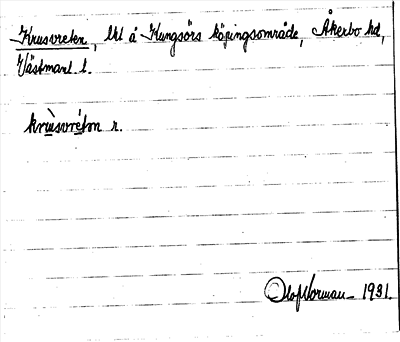 Krusvreten, lht å Kungsörs köpingsområde, Åkerbo hd,
Västmanl. l.
krù̀svré̀ton r.
Olof Norman 1931.